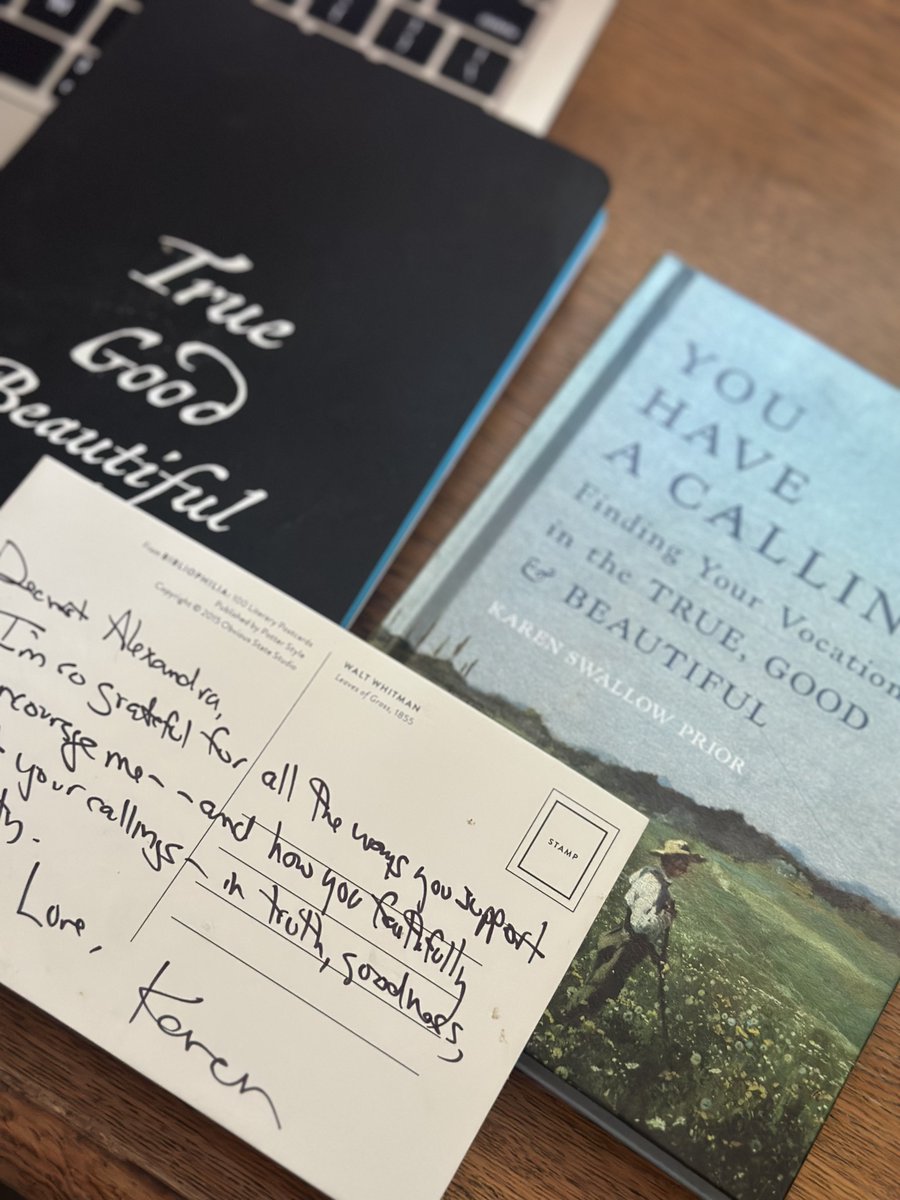 True
Good
Beautiful
YOU
HAVE
A CALLIN
Finding Your Vocation
in the TRUE, GOOD
& BEAUTIFUL
KAREN SWALLOW PRIOR
From BIBLIOPHILIA: 100 Literary Postcards
Published by Potter Style
Copyright © 2015 Obvious State Studio
WALT WHITMAN
Leaves of Grass, 1855
STAMP
Dearest Alexandra,
I'm so grateful for all the ways you support
encourage me - - and how you faithfully
your callings - in truth, goodness,
Love,
Karen